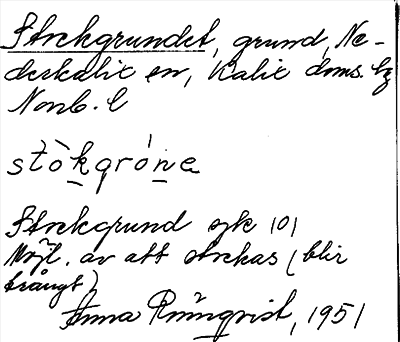 Stockgrundet, grund, Ne-
derkalix sn, Kalix doms. lg
Norrb. l
stòkgróne
Stockgrund sjk 101
Möjl. av att stockas (blir
trångt)
Anna Rönnqvist, 1951